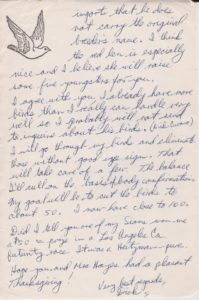 imports, that he does
not carry the original
breeder's name. I think
the red hen is especially
nice and I believe she will raise
some fine youngsters for you.
I agree with you I already have more
birds than I really can handle very
well so I probably will not send
to inquire about his birds.
I will go through my birds and eliminate
those without good eye sign. That
will take care of a few. The balance
I'll cull on the basis of body conformation
My goal will be to cut the birds to
about 50. I now have close to 100.
Did I tell you one of my Sions won me
at 50 in prize in a Los Angeles Ca
futurity race. It was a Heitzman - pure.
Hope you and Mrs Hayes had a pleasant
Thanksgiving!
Very best regards,
Dick